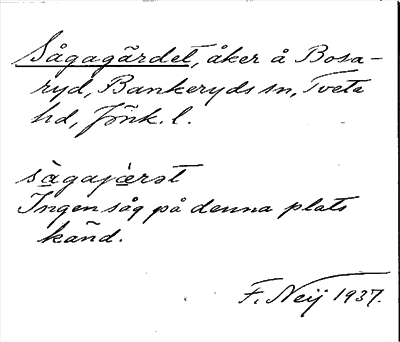 Sågagärdet, åker å Bosa-
ryd, Bankeryds sn, Tveta
hd, Jönk. l.
sàgajæ̀rət
Ingen såg på denna plats
känd.
F. Neij 1937.